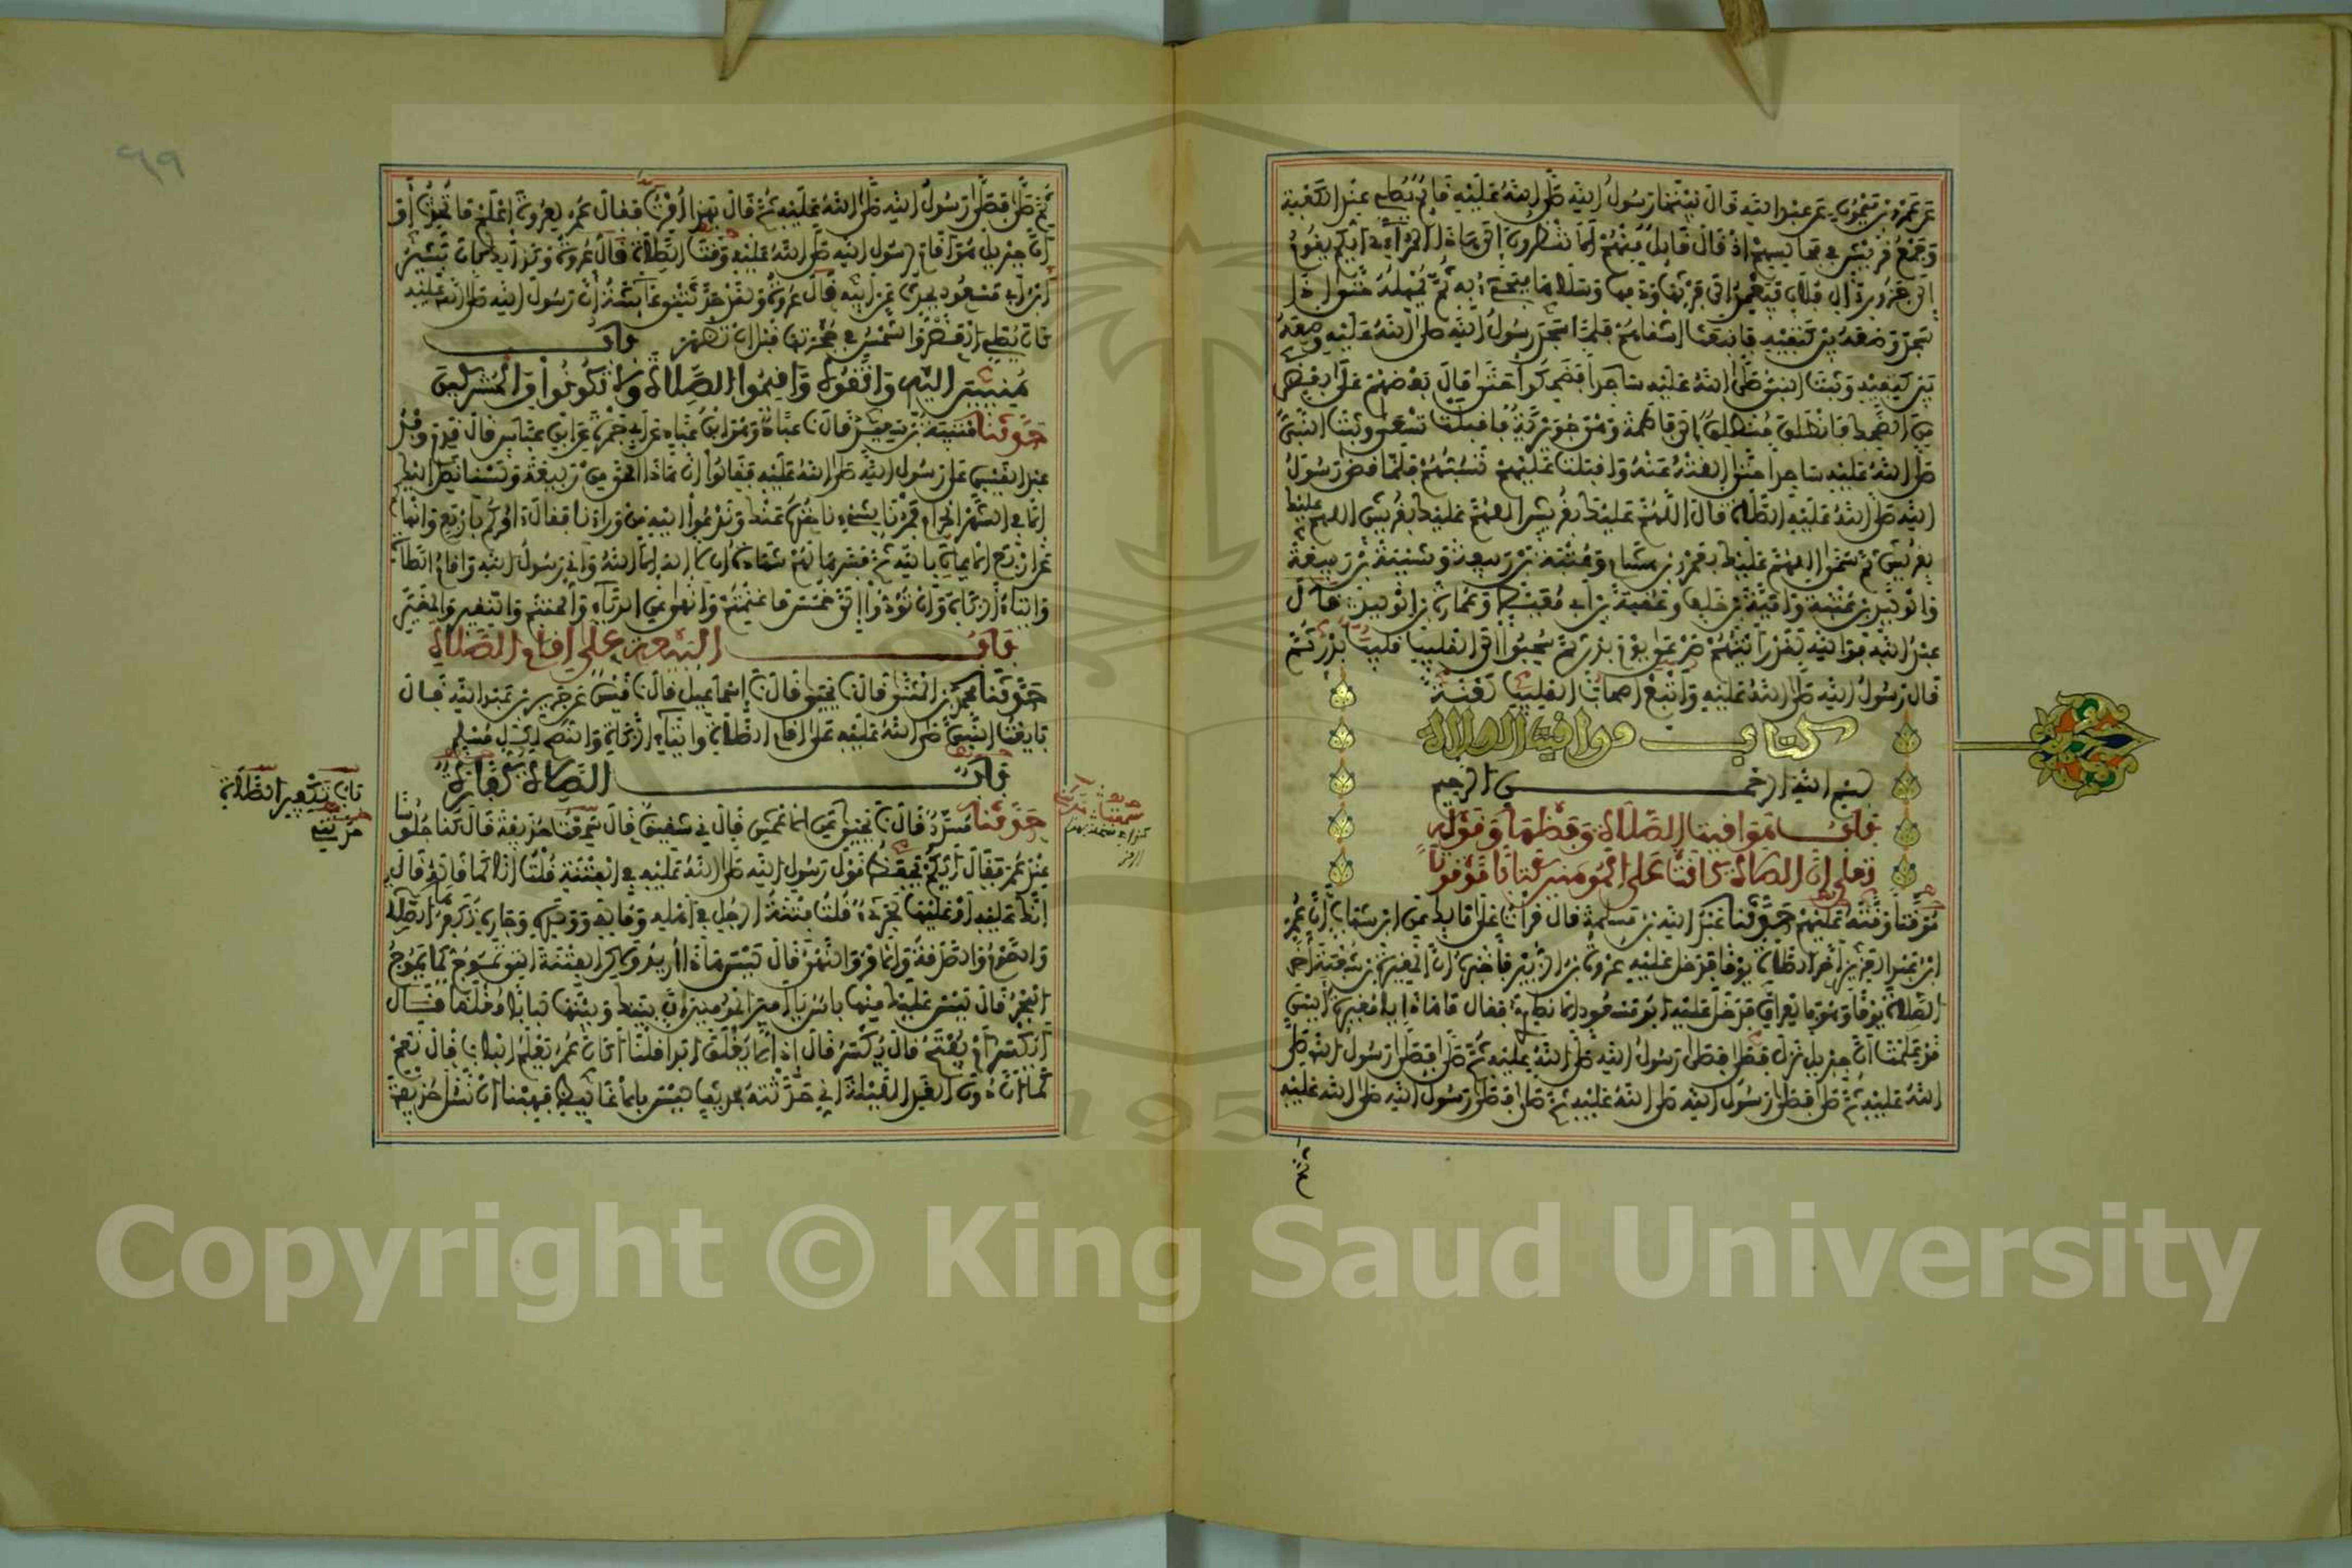 عَنْ عَمْرِو بْنِ مَيْمُونٍ عَنْ عَبْدِ اللهِ قَالَ بَيْنَمَا رَسُولُ اللهِ صَلَّى اللهُ عَلَيْهِ قَائِمٌ يُصَلِّي عِنْدَ الْكَعْبَةِ
وَجَمْعُ قُرَيْشٍ فِي مَجَالِسِهِمْ إِذْ قَالَ قَائِلٌ مِنْهُمْ أَلَا تَنْظُرُونَ إِلَى هَذَا الْمُرَائِي أَيُّكُمْ يَقُومُ
إِلَى جَزُورِ آلِ فُلَانٍ فَيَعْمِدُ إِلَى فَرْثِهَا وَدَمِهَا وَسَلَاهَا فَيَجِيءُ بِهِ ثُمَّ يُمْهِلُهُ حَتَّى إِذَا
سَجَدَ وَضَعَهُ بَيْنَ كَتِفَيْهِ فَانْبَعَثَ أَشْقَاهُمْ فَلَمَّا سَجَدَ رَسُولُ اللهِ صَلَّى اللهُ عَلَيْهِ وَضَعَهُ
بَيْنَ كَتِفَيْهِ وَثَبَتَ النَّبِيُّ صَلَّى اللهُ عَلَيْهِ سَاجِدًا فَضَحِكُوا حَتَّى مَالَ بَعْضُهُمْ عَلَى بَعْضٍ
مِنَ الضَّحِكِ فَانْطَلَقَ مُنْطَلِقٌ إِلَى فَاطِمَةَ وَهْيَ جُوَيْرِيَةٌ فَأَقْبَلَتْ تَسْعَى وَثَبَتَ النَّبِيُّ
صَلَّى اللهُ عَلَيْهِ سَاجِدًا حَتَّى أَلْقَتْهُ عَنْهُ وَأَقْبَلَتْ عَلَيْهِمْ تَسُبُّهُمْ فَلَمَّا قَضَى رَسُولُ
اللهِ صَلَّى اللهُ عَلَيْهِ الصَّلَاةَ قَالَ اللَّهُمَّ عَلَيْكَ بِقُرَيْشٍ اللَّهُمَّ عَلَيْكَ بِقُرَيْشٍ اللَّهُمَّ عَلَيْكَ
بِقُرَيْشٍ ثُمَّ سَمَّى اللَّهُمَّ عَلَيْكَ بِعَمْرِو بْنِ هِشَامٍ وَعُتْبَةَ بْنِ رَبِيعَةَ وَشَيْبَةَ بْنِ رَبِيعَةَ
وَالْوَلِيدِ بْنِ عُتْبَةَ وَأُمَيَّةَ بْنِ خَلَفٍ وَعُقْبَةَ بْنِ أَبِي مُعَيْطٍ وَعُمَارَةَ بْنِ الْوَلِيدِ قَالَ
عَبْدُ اللهِ فَوَاللهِ لَقَدْ رَأَيْتُهُمْ صَرْعَى يَوْمَ بَدْرٍ ثُمَّ سُحِبُوا إِلَى الْقَلِيبِ قَلِيبِ بَدْرٍ ثُمَّ
قَالَ رَسُولُ اللهِ صَلَّى اللهُ عَلَيْهِ وَأُتْبِعَ أَصْحَابُ الْقَلِيبِ لَعْنَةً
كتاب مواقيت الصلاة
بسم الله الرحمن الرحيم
بَابُ مَوَاقِيتِ الصَّلَاةِ وَفَضْلِهَا وَقَوْلِهِ
تَعَلَى إِنَّ الصَّلَاةَ كَانَتْ عَلَى الْمُؤْمِنِينَ كِتَابًا مَوْقُوتًا
مُوَقَّتًا وَقَّتَهُ عَلَيْهِمْ حَدَّثَنَا عَبْدُ اللهِ بْنُ مَسْلَمَةَ قَالَ قَرَأْتُ عَلَى مَالِكٍ عَنِ ابْنِ شِهَابٍ أَنَّ عُمَرَ
ابْنَ عَبْدِ الْعَزِيزِ أَخَّرَ الصَّلَاةَ يَوْمًا فَدَخَلَ عَلَيْهِ عُرْوَةُ بْنُ الزُّبَيْرِ فَأَخْبَرَهُ أَنَّ الْمُغِيرَةَ بْنَ شُعْبَةَ أَخَّرَ
الصَّلَاةَ يَوْمًا وَهْوَ بِالْعِرَاقِ فَدَخَلَ عَلَيْهِ أَبُو مَسْعُودٍ الْأَنْصَارِيُّ فَقَالَ مَا هَذَا يَا مُغِيرَةُ أَلَيْسَ
قَدْ عَلِمْتَ أَنَّ جِبْرِيلَ نَزَلَ فَصَلَّى فَصَلَّى رَسُولُ اللهِ صَلَّى اللهُ عَلَيْهِ ثُمَّ صَلَّى فَصَلَّى رَسُولُ اللهِ صَلَّى
اللهُ عَلَيْهِ ثُمَّ صَلَّى فَصَلَّى رَسُولُ اللهِ صَلَّى اللهُ عَلَيْهِ ثُمَّ صَلَّى فَصَلَّى رَسُولُ اللهِ صَلَّى اللهُ عَلَيْهِ
٩٩
ثُمَّ صَلَّى فَصَلَّى رَسُولُ اللهِ صَلَّى اللهُ عَلَيْهِ ثُمَّ قَالَ بِهَذَا أُمِرْتُ فَقَالَ عُمَرُ لِعُرْوَةَ اعْلَمْ مَا تُحَدِّثُ أَوَ
أَنَّ جِبْرِيلَ هُوَ أَقَامَ لِرَسُولِ اللهِ صَلَّى اللهُ عَلَيْهِ وَقْتَ الصَّلَاةِ قَالَ عُرْوَةُ وَكَذَلِكَ كَانَ بَشِيرُ
ابْنُ أَبِي مَسْعُودٍ يُحَدِّثُ عَنْ أَبِيهِ قَالَ عُرْوَةُ وَلَقَدْ حَدَّثَتْنِي عَائِشَةُ أَنَّ رَسُولَ اللهِ صَلَّى اللهُ عَلَيْهِ
كَانَ يُصَلِّي الْعَصْرَ وَالشَّمْسُ فِي حُجْرَتِهَا قَبْلَ أَنْ تَظْهَرَ بَابُ
مُنِيبِينَ إِلَيْهِ وَاتَّقُوهُ وَأَقِيمُوا الصَّلَاةَ وَلَا تَكُونُوا مِنَ الْمُشْرِكِينَ
حَدَّثَنَا قُتَيْبَةُ بْنُ سَعِيدٍ قَالَ عَبَّادٌ وَهُوَ ابْنُ عَبَّادٍ عَنْ أَبِي جَمْرَةَ عَنِ ابْنِ عَبَّاسٍ قَالَ قَدِمَ وَفْدُ
عَبْدِ الْقَيْسِ عَلَى رَسُولِ اللهِ صَلَّى اللهُ عَلَيْهِ فَقَالُوا إِنَّ هَذَا الْحَيَّ مِنْ رَبِيعَةَ وَلَسْنَا نَصِلُ إِلَيْكَ
إِلَّا فِي الشَّهْرِ الْحَرَامِ فَمُرْنَا بِشَيْءٍ نَأْخُذْهُ عَنْكَ وَنَدْعُو إِلَيْهِ مَنْ وَرَاءَنَا فَقَالَ آمُرُكُمْ بِأَرْبَعٍ وَأَنْهَاكُمْ
عَنْ أَرْبَعٍ الْإِيمَانِ بِاللهِ ثُمَّ فَسَّرَهَا لَهُمْ شَهَادَةُ أَنْ لَا إِلَهَ إِلَّا اللهُ وَأَنِّي رَسُولُ اللهِ وَإِقَامُ الصَّلَاةِ
وَإِيتَاءُ الزَّكَاةِ وَأَنْ تُؤَدُّوا إِلَيَّ خُمُسَ مَا غَنِمْتُمْ وَأَنْهَى عَنِ الدُّبَّاءِ وَالْحَنْتَمِ وَالنَّقِيرِ وَالْمُقَيَّرِ
بَابُ الْبَيْعَةِ عَلَى إِقَامِ الصَّلَاةِ
حَدَّثَنَا مُحَمَّدُ بْنُ الْمُثَنَّى قَالَ يَحْيَى قَالَ إِسْمَاعِيلُ قَالَ قَيْسٌ عَنْ جَرِيرِ بْنِ عَبْدِ اللهِ قَالَ
بَايَعْتُ النَّبِيَّ صَلَّى اللهُ عَلَيْهِ عَلَى إِقَامِ الصَّلَاةِ وَإِيتَاءِ الزَّكَاةِ وَالنُّصْحِ لِكُلِّ مُسْلِمٍ
بَابٌ الصَّلَاةُ كَفَّارَةٌ
حَدَّثَنَا مُسَدَّدٌ قَالَ يَحْيَى عَنِ الْأَعْمَشِ قَالَ شَقِيقٌ قَالَ سَمِعْتُ حُذَيْفَةَ قَالَ كُنَّا جُلُوسًا
عِنْدَ عُمَرَ فَقَالَ أَيُّكُمْ يَحْفَظُ قَوْلَ رَسُولِ اللهِ صَلَّى اللهُ عَلَيْهِ فِي الْفِتْنَةِ قُلْتُ أَنَا كَمَا قَالَهُ قَالَ
إِنَّكَ عَلَيْهِ أَوْ عَلَيْهَا لَجَرِيءٌ قُلْتُ فِتْنَةُ الرَّجُلِ فِي أَهْلِهِ وَمَالِهِ وَوَلَدِهِ وَجَارِهِ تُكَفِّرُهَا الصَّلَاةُ
وَالصَّوْمُ وَالصَّدَقَةُ وَالْأَمْرُ وَالنَّهْيُ قَالَ لَيْسَ هَذَا أُرِيدُ وَلَكِنِ الْفِتْنَةَ الَّتِي تَمُوجُ كَمَا يَمُوجُ
الْبَحْرُ قَالَ لَيْسَ عَلَيْكَ مِنْهَا بَأْسٌ يَا أَمِيرَ الْمُؤْمِنِينَ إِنَّ بَيْنَكَ وَبَيْنَهَا بَابًا مُغْلَقًا قَالَ
أَيُكْسَرُ أَمْ يُفْتَحُ قَالَ يُكْسَرُ قَالَ إِذًا لَا يُغْلَقَ أَبَدًا قُلْنَا أَكَانَ عُمَرُ يَعْلَمُ الْبَابَ قَالَ نَعَمْ
كَمَا أَنَّ دُونَ الْغَدِ اللَّيْلَةَ إِنِّي حَدَّثْتُهُ بِحَدِيثٍ لَيْسَ بِالْأَغَالِيطِ فَهِبْنَا أَنْ نَسْأَلَ حُذَيْفَةَ
باب تكفير الصلاة
Copyright © King Saud University
195